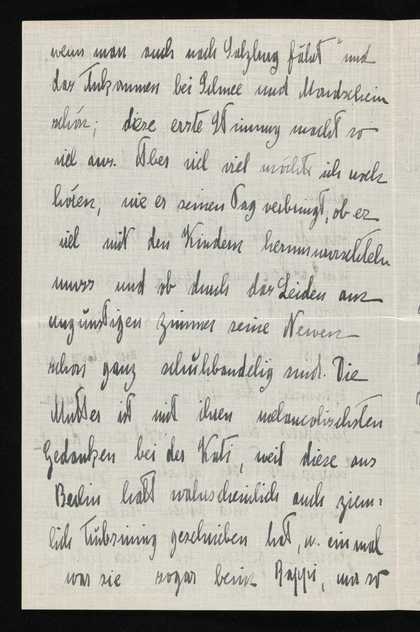 wenn man auch nach Salzburg fährt" und
das Ankommen bei Schnee und Mondschein
schön; diese erste Stimmung macht so
viel aus. Aber viel viel möchte ich noch
hören, wie er seinen Tag verbringt, ob er
viel mit den Kindern herum
muss und ob durch das Leiden am
ungünstigen Zimmer seine Nerven
schon ganz sind. Die
Mutter ist mit ihren melancholischsten
Gedanken bei der Kati, weil diese aus
Berlin halt wahrscheinlich auch ziem-
lich Trübsinnig geschrieben hat, u. einmal
war sie sogar beim Pappi, wo